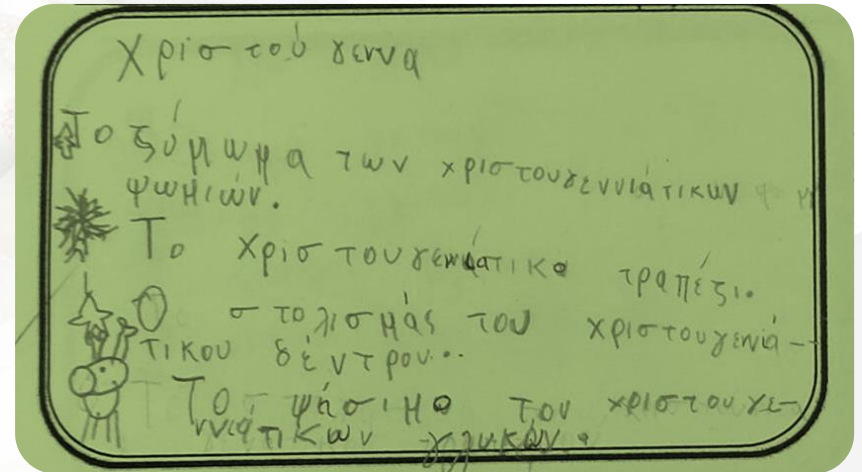 Χρισ τού γεννα
Το ζύμωμα των χριστουγεννιάτικων
ψωμιών.
Το χρισ τουγεννιάτικο τραπέζι.
Ο στολισμάς του χριστουγενιά-
τικου δέντρου...
Το ψήσιμο τον χριστουγε-
ννιάτικων γλυκών.